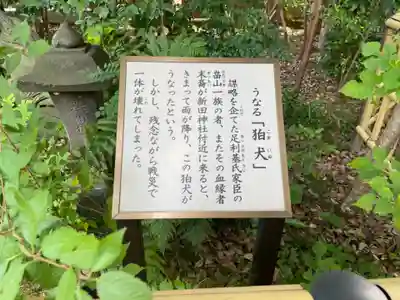 うなる「狛犬」
謀略を企てた足利基氏家臣の
畠山一族の者、またその血縁者
末裔が新田神社付近に来ると、
きまって雨が降り、この狛犬が
うなったという。
しかし、残念ながら戦災で
一体が壊れてしまった。